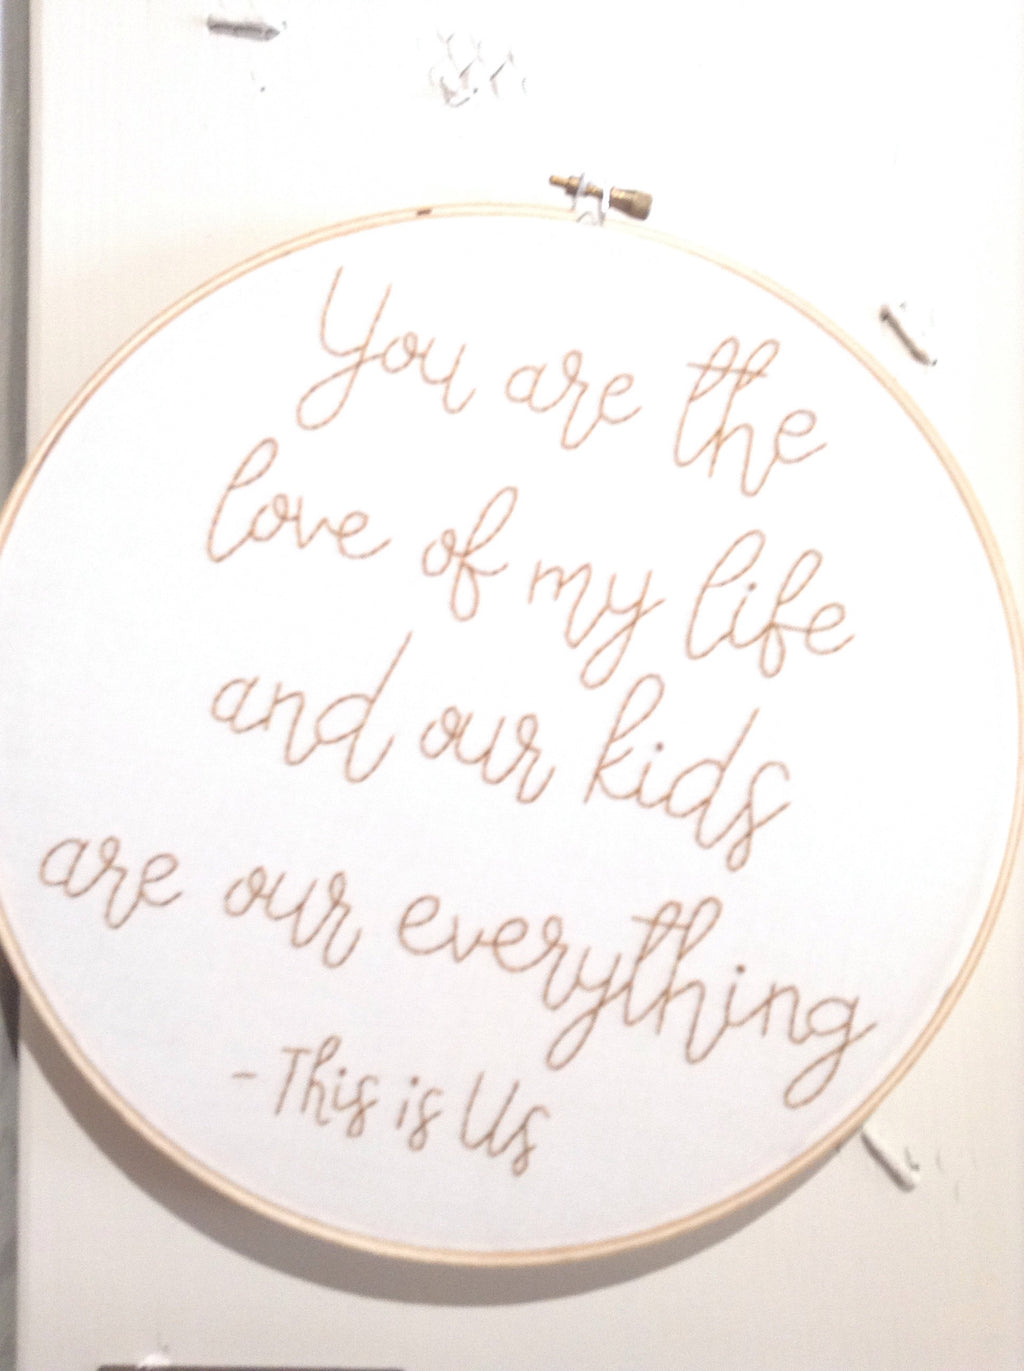 You are the
love of my life
and our kids
are our everything
- This is Us